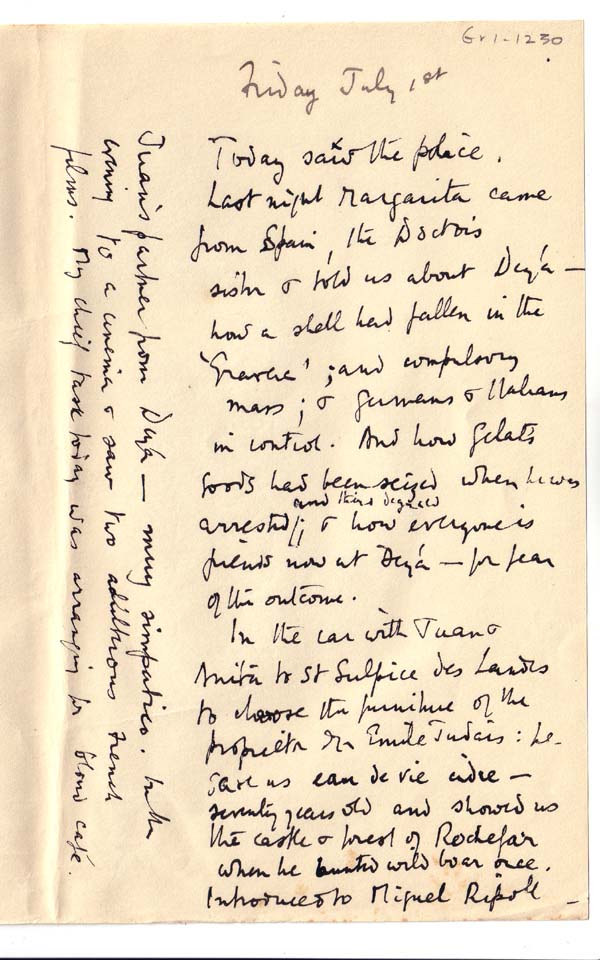 Gr1-1230
Friday July 1st
Today saw the police.
Last night Margarita came
from Spain, the Doctor's
sister & told us about Deyá —
how a shell had fallen in the
'Gravera'; and compulsory
mass; & Germans & Italians
in control. And how Gelats
goods had been seized when he was
and third degreed
arrested; & how everyone is
friends now at Deyá — for fear
of the outcome.
In the car with Juan &
Anita to St Sulpice des Landes
to choose the furniture of the
proprietor Mr Emile Judais: he
gave us eau de vie cidre —
seventy years old and showed us
the castle & forest of Rochefor
when he hunted wild boar once.
Introduced to Miguel Ripoll —
Juan's partner from Deyá — muy simpatico. In the
evening to a cinema & saw two adulterous French
films. My chief task today was arranging for blond café.